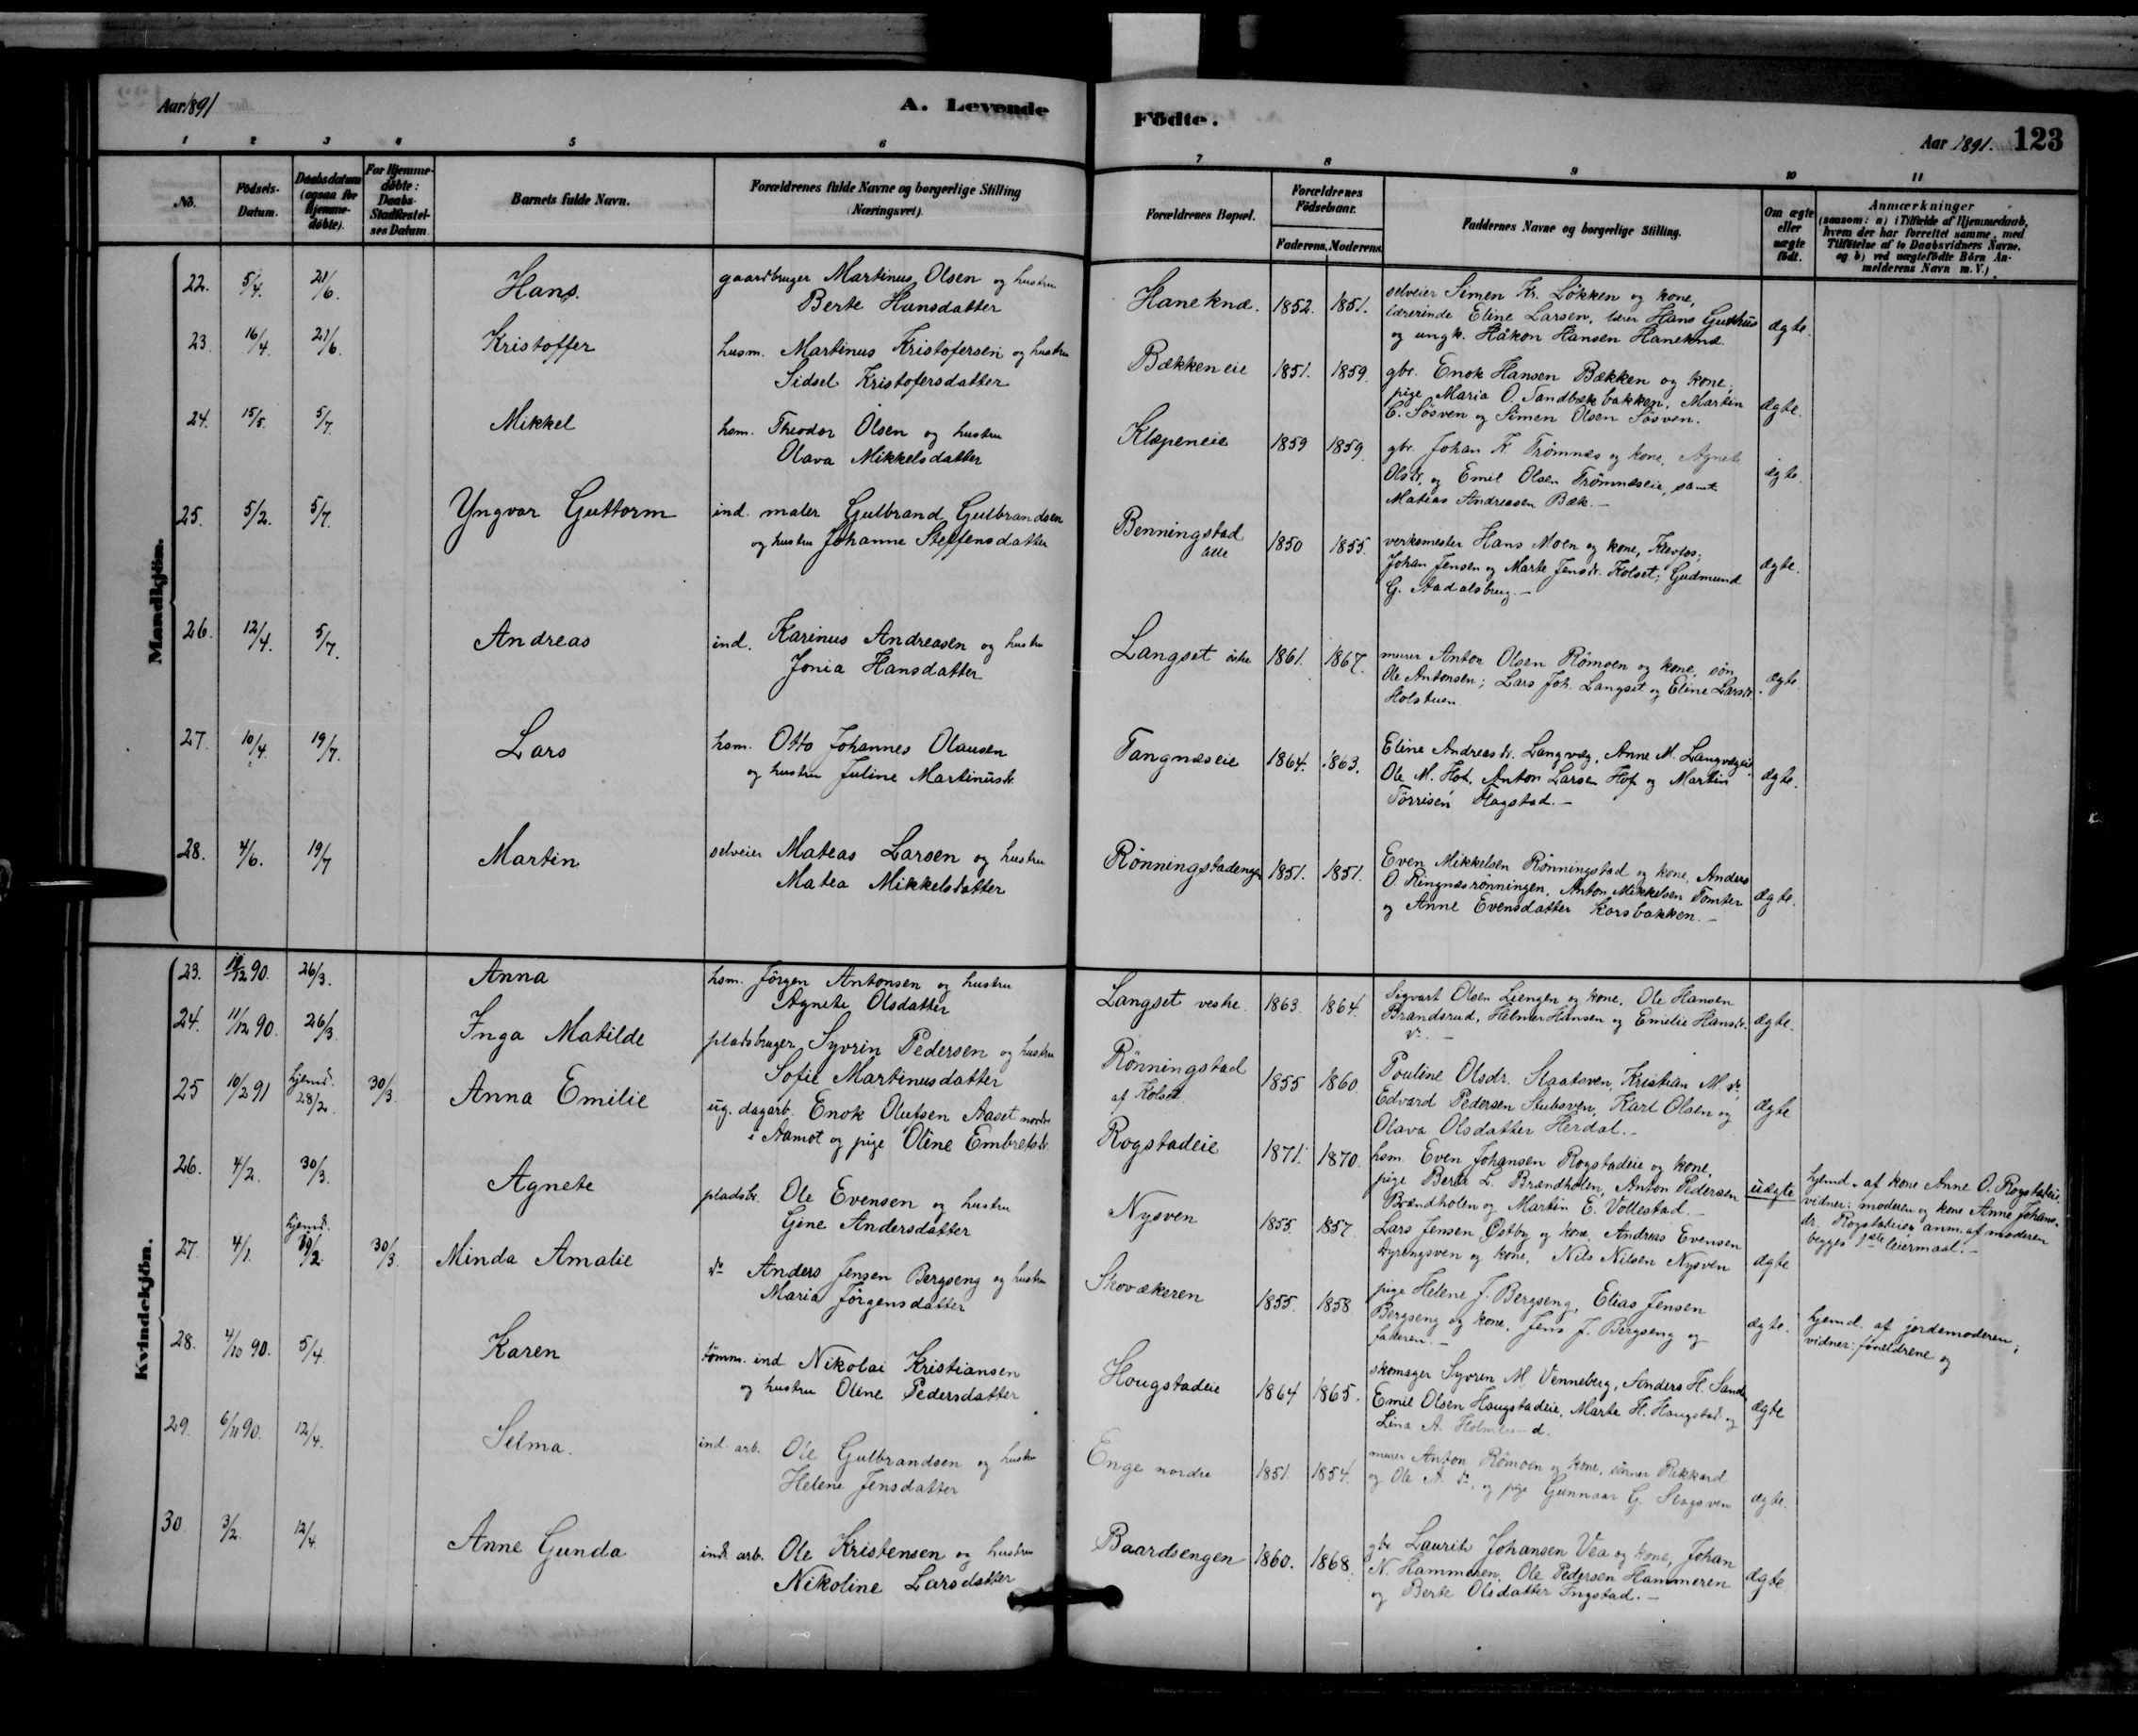 Aar 1891
A. Levende
Födte.
Aar 1891. 123
1 2 3 4 5 6 7 8 9 10 11
No.
Födsels-Datum.
Daabsdatum (ogsaa for Hjemme-döbte).
For Hjemme-döbte: Daabs-Stadfæstel-ses Datum.
Barnets fulde Navn.
Forældrenes fulde Navne og borgerlige Stilling (Næringsvei).
Forældrenes Bopæl.
Forældrenes Födselsaar.
Faderens. Moderens.
Faddernes Navne og borgerlige Stilling.
Om ægte eller uægte födt.
Anmærkninger
(saasom: a) i Tilfælde af Hjemmedaab,
hvem der har forrettet samme, med
Tilföielse af to Daabsvidners Navne.
og b) ved uægtefödte Börn An-
melderens Navn m. V.)
Mandkjön.
22. 5/4. 21/6. Hans. gaardbruger Martinus Olsen og hustru
Berte Hansdatter
Haneknæ. 1852. 1851. selveier Simen Kr. Lökken og kone,
lærerinde Eline Larsen, lærer Hans Gutthus
og ungk. Håkon Hansen Haneknæ ægte.
23. 16/4. 21/6. Kristoffer husm. Martinus Kristofersen og hustru
Sidsel Kristofersdatter
Bækkeneie 1851. 1859. gbr. Enok Hansen Bækken og kone,
pige Maria O. Sandbækbakken, Martin
E. Sösven og Simen Olsen Sösven. ægte.
24. 15/5. 5/7. Mikkel hsm. Theodor Olsen og hustru
Olava Mikkelsdatter
Klæpeneie 1859 1859. gbr. Johan K. Trömnæs og kone, Agnete
Olsdr. og Emil Olsen Trömnæseie, samt
Mateas Andreasen Bæk.- ægte.
25. 5/2. 5/7. Yngvar Guttorm ind. maler Gulbrand Gulbrandsen
og hustru Johanne Steffensdatter
Benningstad
lille 1850 1855. verksmester Hans Moen og kone, Klevfos;
Johan Jensen og Marte Jensdr. Kolset; Gudmund
G. Aadalsbrug.- ægte.
26. 12/4. 5/7. Andreas ind. Karinus Andreasen og hustru
Jonia Hansdatter
Langset östre 1861. 1867. murer Anton Olsen Römoen og kone, sön
Ole Antonsen; Lars Joh. Langset og Eline Larsdr.
Holstuen ægte.
27. 10/4. 19/7. Lars hsm. Otto Johannes Olausen
og hustru Juline Martinusdr.
Tangnæseie 1864. 1863. Eline Andreasdr. Langvæg, Anne M. Langvægeie
Ole M. Hof, Anton Larsen Hof og Martin
Törrisen Flagstad.- ægte.
28. 4/6. 19/7 Martin selveier Mateas Larsen og hustru
Matea Mikkelsdatter
Rönningstadengen 1851. 1851. Even Mikkelsen Rönningstad og kone, Anders
O. Ringnæsrönningen, Anton Mikkelsen Tomter
og Anne Evensdatter Korsbakken.- ægte.
Kvindekjön.
23. 12 90. 26/3. Anna hsm. Jörgen Antonsen og hustru
Agnete Olsdatter
Langset vestre 1863. 1864. Sigvart Olsen Liengen og kone, Ole Hansen
Brandsrud, Helmer Hansen og Emelie Hansdr.
do.- ægte.
24. 11/12 90. 26/3 Inga Matilde pladsbruger Syvrin Pedersen og hustru
Sofie Martinusdatter
Rönningstad
af Kolset 1855 1860 Pouline Olsdr. Staatsven, Kristian M. do,
Edvard Pedersen Stubsven, Karl Olsen og
Olava Olsdatter Herdal.- ægte
25 10/2 91 hjemd. 28/2. 30/3. Anna Emilie ug. dagarb. Enok Olufsen Aaset nordre
i Aamot og pige Oline Embretsdr.
Rogstadeie 1871. 1870. hsm. Even Johansen Rogstadeie og kone,
pige Berte L. Brændholen, Anton Pedersen
Brændholen og Martin E. Vollestad.- uægte
hjemd. af kone Anne O. Rogstadeie.
vidner: moderen og kone Anne Johans-
dr. Rogstadeie; anm. af moderen
begges 1ste leiermaal.-
26. 4/2. 30/3. Agnete pladsbr. Ole Evensen og hustru
Gine Andersdatter
Nysven 1855. 1857. Lars Jensen Östby og kone, Andreas Evensen
Dyrengsven og kone, Nils Nilsen Nysven ægte
27. 4/1. hjemd. 19/2. 30/3. Minda Amalie do Anders Jensen Bergseng og hustru
Maria Jörgensdatter
Skovækeren 1855. 1858 pige Helene J. Bergseng, Elias Jensen
Bergseng og kone, Jens J. Bergseng og
faderen.- ægte.
hjemd. af jordemoderen;
vidner: forældrene og
28. 4/10 90. 5/4. Karen tömm. ind Nikolai Kristiansen
og hustru Oline Pedersdatter
Hougstadeie 1864 1865. skomager Syvrin M. Venneberg, Anders H. Sande
Emil Olsen Hougstadeie, Marte H. Haugstad og
Lina A. Holmlund. ægte
29. 6/11 90. 12/4. Selma. ind. arb. Ole Gulbrandsen og hustru
Helene Jensdatter
Enge nordre 1851. 1854. murer Anton Römoen og kone, sönner Rikkard
og Ole A. do, og pige Gunnaar G. Slagsven ægte.
30. 3/2. 12/4. Anne Gunda ind. arb. Ole Kristensen og hustru
Nikoline Larsdatter
Baardsengen 1860. 1868. gbr Laurits Johansen Vea og kone, Johan
N. Hammeren, Ole Pedersen Hammeren
og Berte Olsdatter Ingstad.- ægte